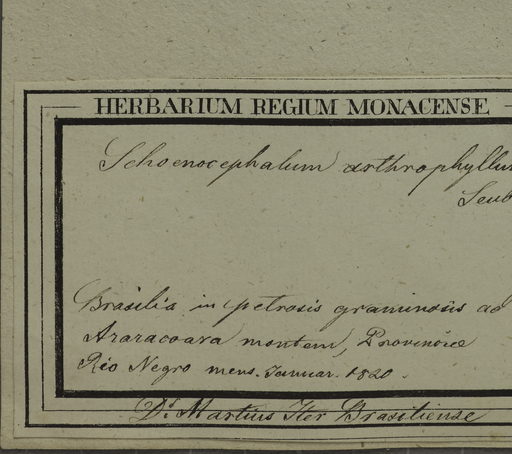 HERBARIUM REGIUM MONACENSE
Schoenocephalum arthrophyllu
Seub
Brasilia in petrosis graminosis ad
Araracoara montem, Provinciæ
Rio Negro mens. Januar. 1820.
Dr. Martius Iter Brasiliense